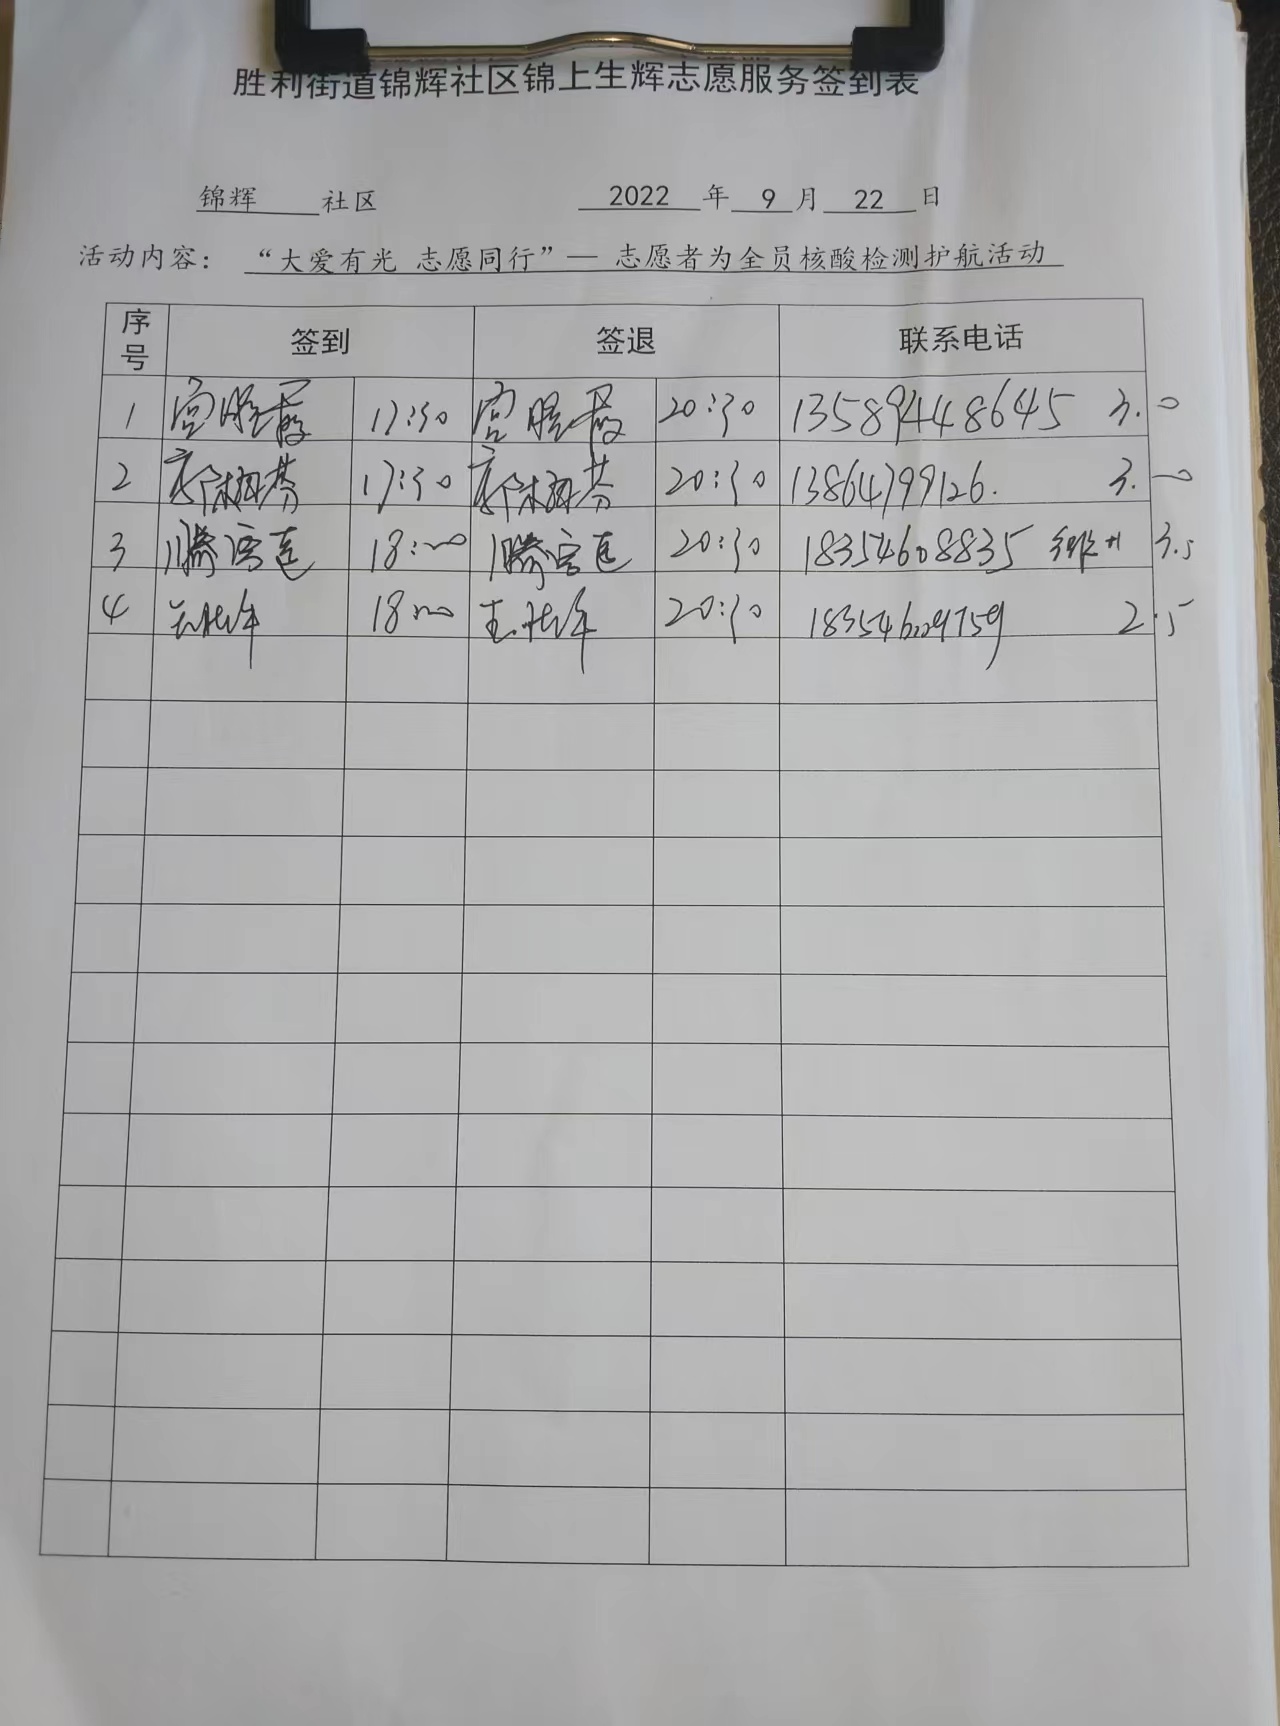 胜利街道锦辉社区锦上生辉志愿服务签到表
锦辉 社区 2022 年 9 月 22 日
活动内容： “大爱有光 志愿同行”— 志愿者为全员核酸检测护航活动
序号 签到 签退 联系电话
1 宫晓霞 17:30 宫晓霞 20:30 13589448645 3.0
2 17:30 20:30 13864799126. 3.0
3 18:00 20:30 18354608835 3.5
4 18:00 20:30 2.5